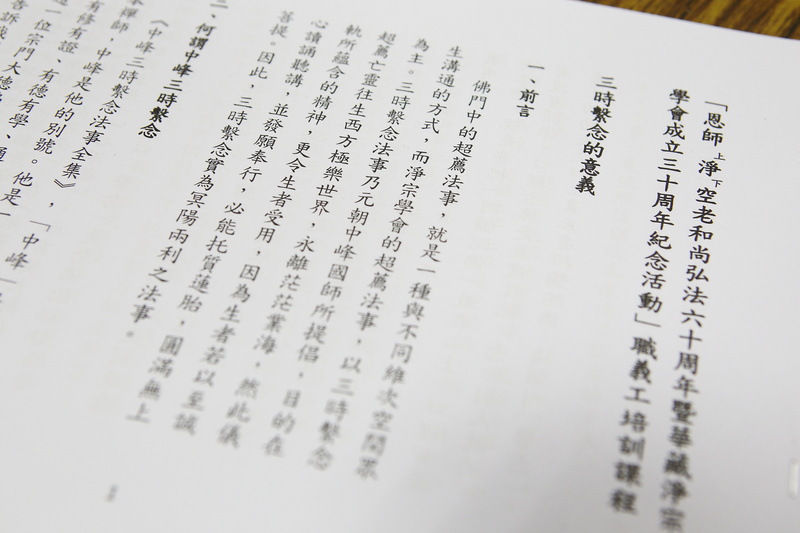 「恩師上淨下空老和尚弘法六十周年暨華藏淨宗
學會成立三十周年紀念活動」職義工培訓課程
三時繫念的意義
一、前言
佛門中的超薦法事，就是一種與不同維次空間眾
生溝通的方式，而淨宗學會的超薦法事，以三時繫念
為主。三時繫念法事乃元朝中峰國師所提倡，目的在
超薦亡靈往生西方極樂世界，永離茫茫業海，然此儀
軌所蘊含的精神，更令生者受用，因為生者若以至誠
心讀誦聽講，並發願奉行，必能托質蓮胎，圓滿無上
菩提。因此，三時繫念實為冥陽兩利之法事。
二、何謂中峰三時繫念
《中峰三時繫念法事全集》，「中峰」
本禪師，中峰是他的別號。他是一
有修有證、有德有學、通
一位宗門大德
告訴我